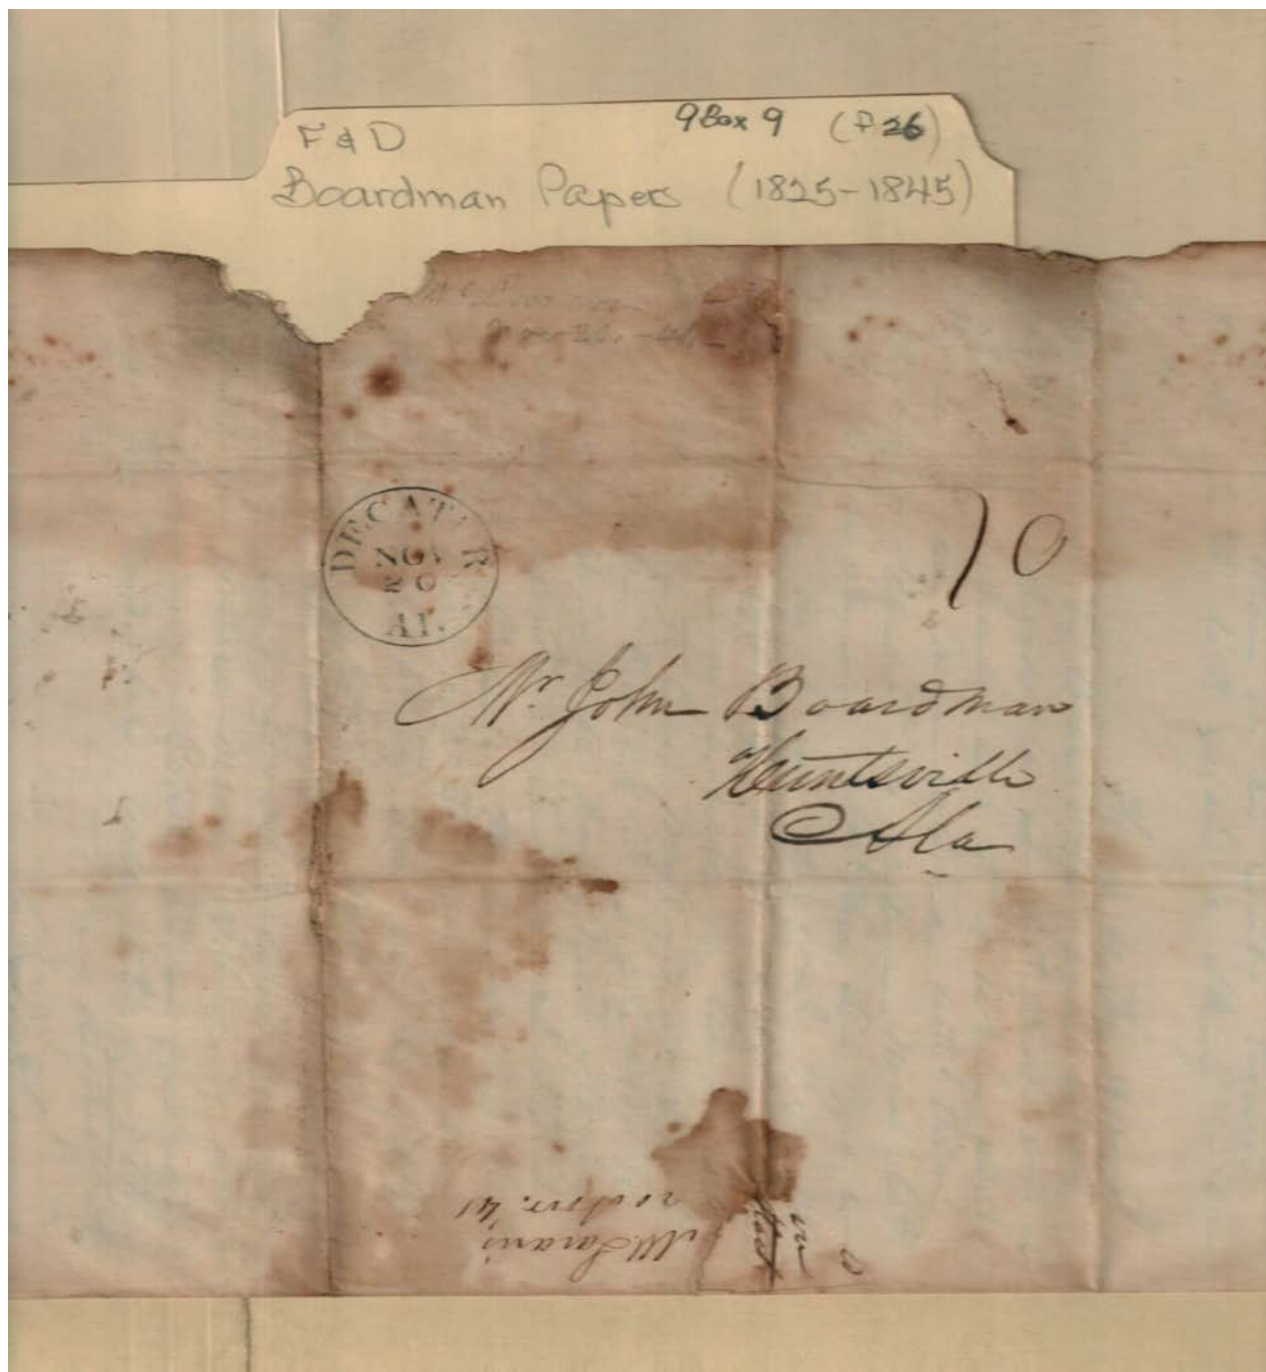 F & D
9 Box 9 (f 26)
Boardman Papers (1825-1845)
DECATUR
NOV
20
Al.
10
Mr. John Boardman
Huntsville
Ala
20 Novr. 41